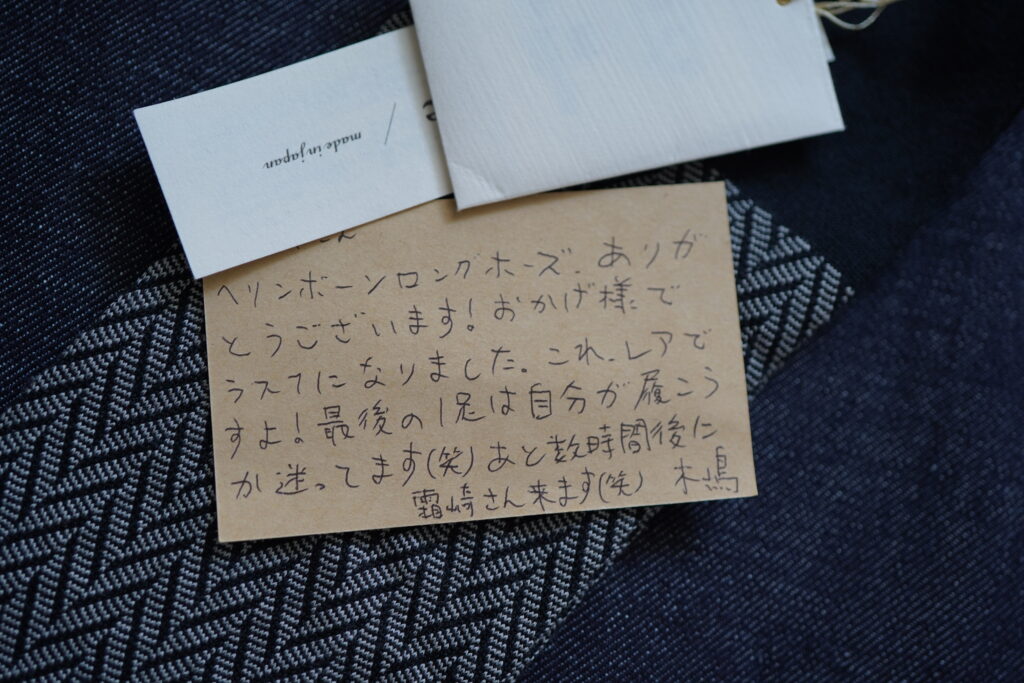 made in japan
ヘリンボーンロングホーズ、ありが
とうございます!おかげ様で
ラスイチになりました。これ、レアで
すよ!最後の1足は自分が履こう
か迷ってます(笑)あと数時間後に
霜崎さん来ます(笑) 木嶋